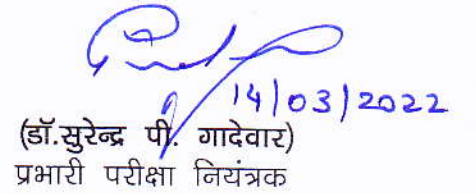 14/03/2022
(डॉ.सुरेन्द्र पी. गादेवार)
प्रभारी परीक्षा नियंत्रक